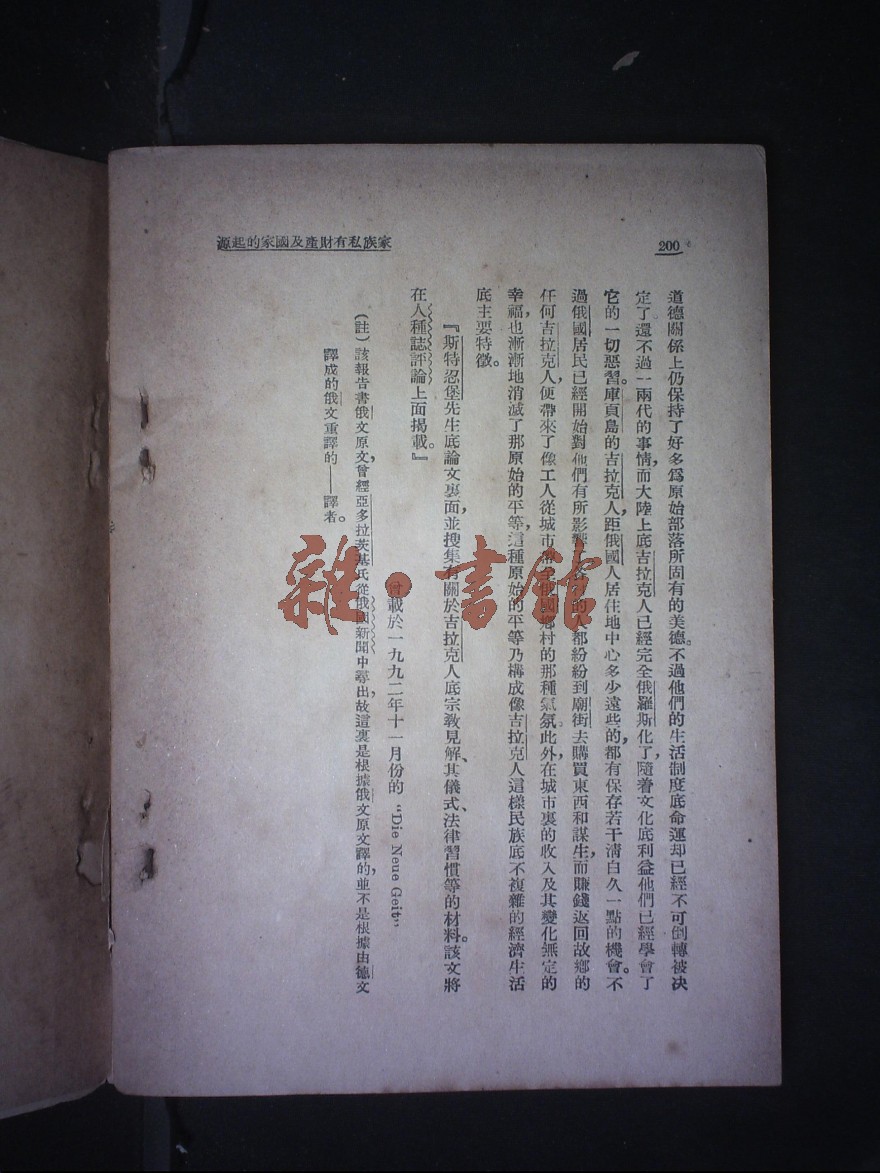 200
家族私有財產及國家的起源
道德關係上仍保持了好多爲原始部落所固有的美德。不過他們的生活制度底命運却已經不可倒轉被决
定了還不過一兩代的事情,而大陸上底吉拉克人已經完全俄羅斯化了,隨着文化底利益他們已經學會了
它的一切惡習。庫頁島的吉拉克人,距俄國人居住地中心多少遠些的,都有保存若干清白久一點的機會。不
過俄國居民已經開始對他們有所影響的人都紛紛到廟街去購買東西和謀生,而賺錢返回故鄉的
任何吉拉克人,便帶來了像工人從城市國鄉村的那種氣氛。此外,在城市裏的收入及其變化無定的
幸福,也漸漸地消滅了那原始的平等,這種原始的平等乃構成像吉拉克人這樣民族底不複雜的經濟生活
底主要特徵。
『斯特忍堡先生底論文裏面,並搜集有關於吉拉克人底宗教見解、其儀式、法律習慣等的材料。該文將
在人種誌評論上面揭載。』
載於一九九二年十一月份的 “Die Neue Geit”
(註)該報告書俄文原文,曾經亞多拉茨基氏從俄國新聞中尋出,故這裏是根據俄文原文譯的,並不是根據由德文
譯成的俄文重譯的——譯者。
雜·書館